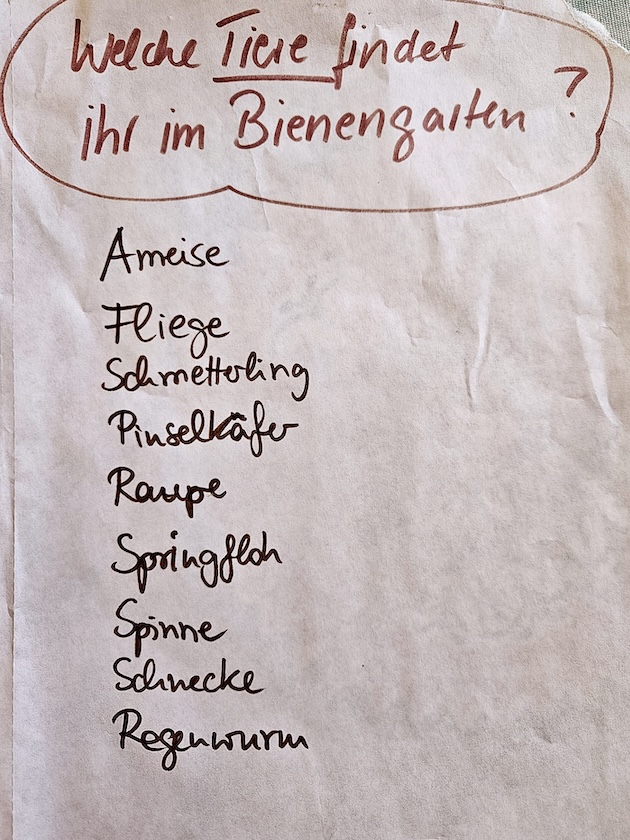 Welche Tiere findet
ihr im Bienengarten ?
Ameise
Fliege
Schmetterling
Pinselkäfer
Raupe
Springfloh
Spinne
Schnecke
Regenwurm